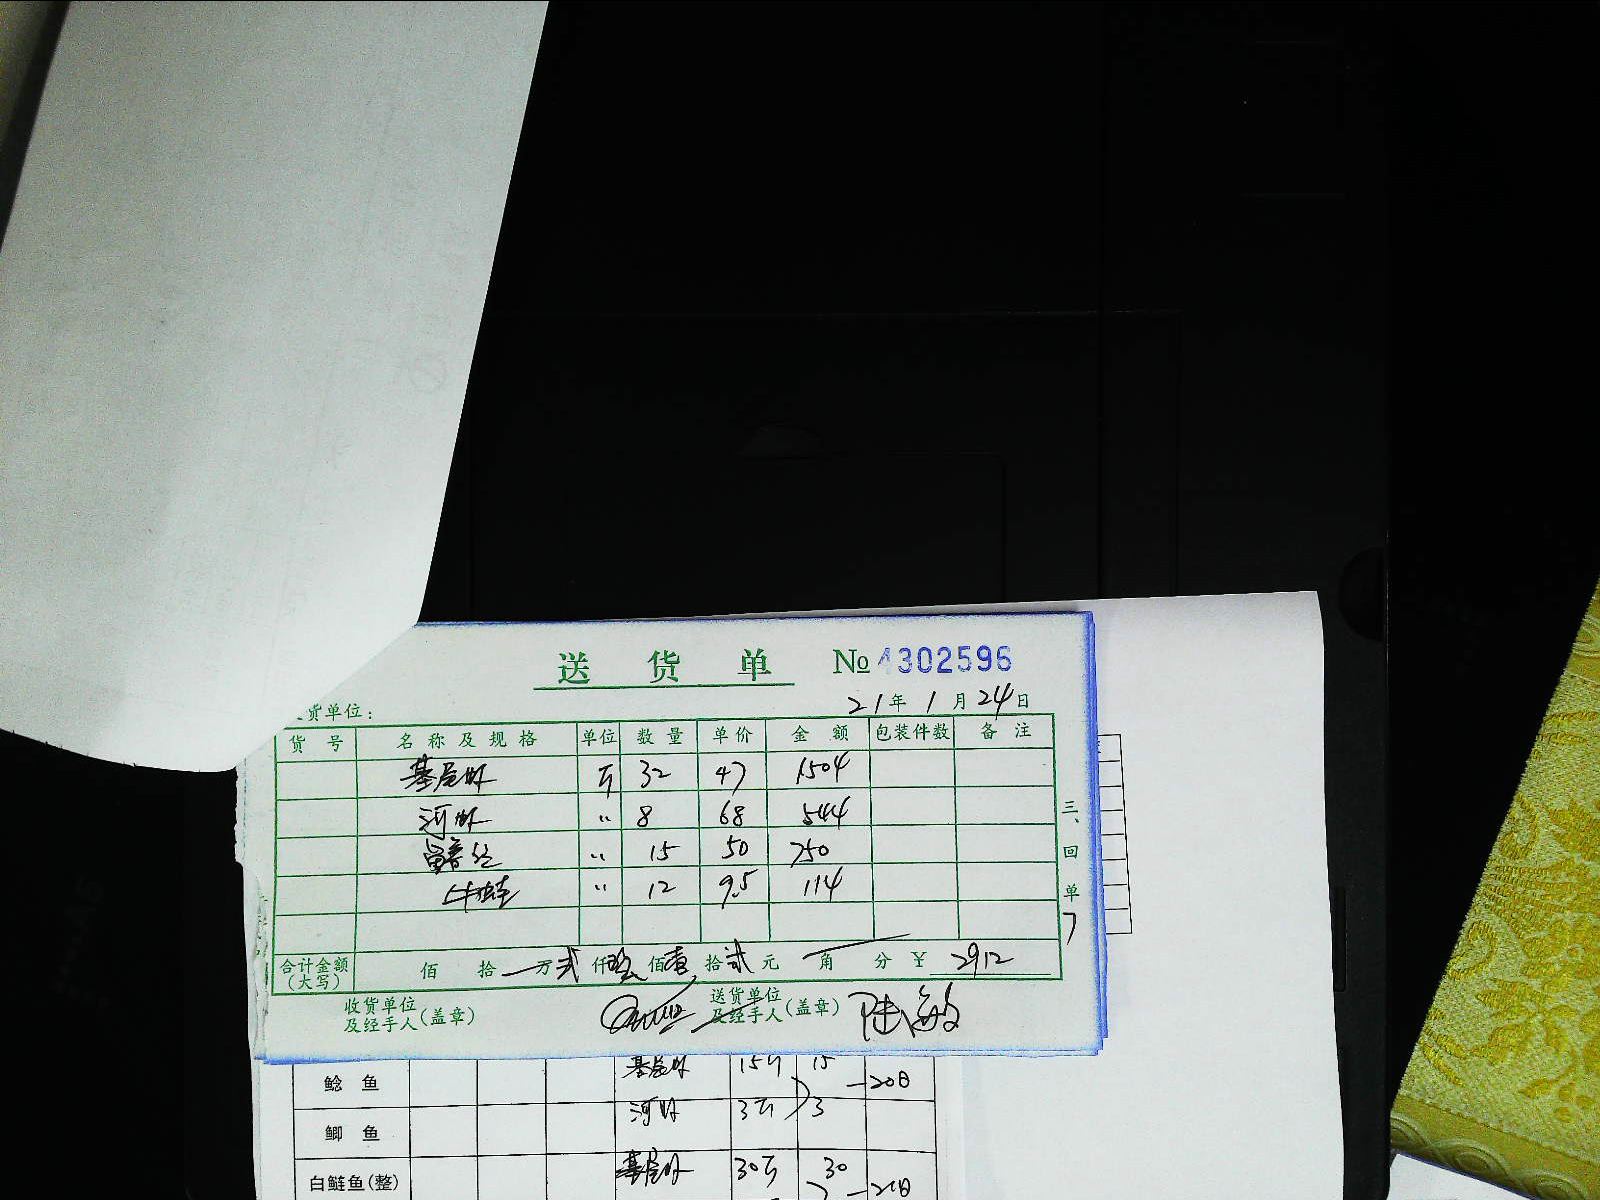 送 货 单 No 4302596
21年 1月 24日
货单位：
货 号 名 称 及 规 格 单位 数 量 单价 金 额 包装件数 备 注
基尾虾 斤 32 47 1504
河虾 〃 8 68 544
〃 15 50 750
牛蛙 〃 12 9.5 114
三、回单
合计金额(大写) 佰 拾 万 贰 仟 玖 佰 壹 拾 贰 元 角 分 ¥ 2912
收货单位及经手人(盖章) 送货单位及经手人(盖章) 陆敏
基尾虾 15斤 15
鲶 鱼 20日
河虾 3斤 3
鲫 鱼
基尾虾 30斤 30
白鲢鱼(整) 21日